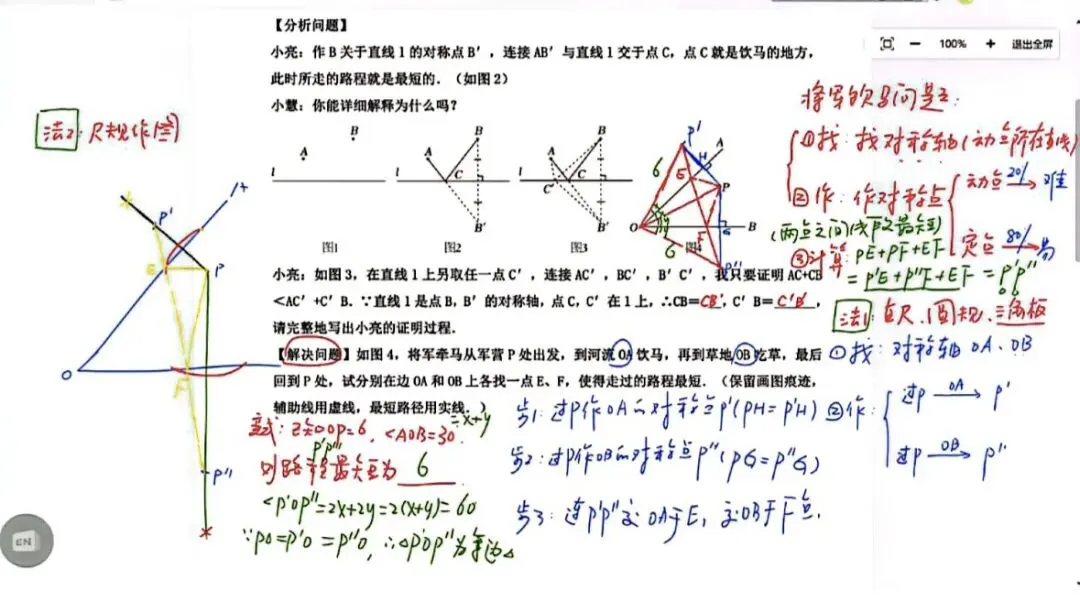 100%
退出全屏
【分析问题】
小亮：作 B 关于直线 l 的对称点 B′，连接 AB′与直线 l 交于点 C，点 C 就是饮马的地方，
此时所走的路程就是最短的．（如图 2）
小慧：你能详细解释为什么吗？
A
B
l
图1
A
B
l
C
B′
图2
A
B
l
C′
C
B′
图3
P′
A
H
E
P
6
x
y
O
F
G
B
6
P″
图4
小亮：如图 3，在直线 l 上另取任一点 C′，连接 AC′，BC′，B′C′，我只要证明 AC+CB
<AC′+C′B．∵直线 l 是点 B，B′的对称轴，点 C，C′在 l 上，∴CB=CB′，C′B=C′B′，
请完整地写出小亮的证明过程．
【解决问题】如图 4，将军牵马从军营 P 处出发，到河流 OA 饮马，再到草地 OB 吃草，最后
回到 P 处，试分别在边 OA 和 OB 上各找一点 E、F，使得走过的路程最短．（保留画图痕迹，
辅助线用虚线，最短路径用实线．）
变式：已知OP=6，<AOB=30
=x+y
P′P″
则路程最短为 6
<P′OP″=2x+2y=2(x+y)=60
∵PO=P′O=P″O，∴△P′OP″为等边△
步1：过P作OA的对称点P′(PH=P′H)
步2：过P作OB的对称点P″(PG=P″G)
步3：连P′P″交OA于E，交OB于F点．
将军饮马问题：
①找：找对称轴(动点所在直线)
②作：作对称点
动点 20% 难
定点 80% 易
(两点之间线段最短)
③计算：PE+PF+EF
=P′E+P″F+EF=P′P″
法1：直尺、圆规、三角板
①找：对称轴OA、OB
②作：
过P OA P′
过P OB P″
法2：尺规作图
P′
A
E
P
O
F
P″
EN